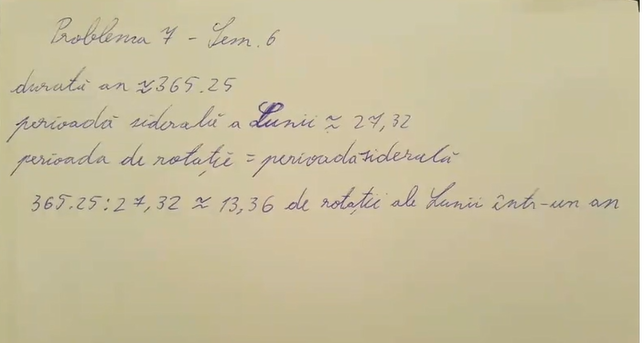 Problema 7 - Sem. 6
durată an ≈ 365.25
perioadă siderală a Lunii ≈ 27,32
perioada de rotație = perioada siderală
365.25 : 27,32 ≈ 13,36 de rotații ale Lunii într-un an